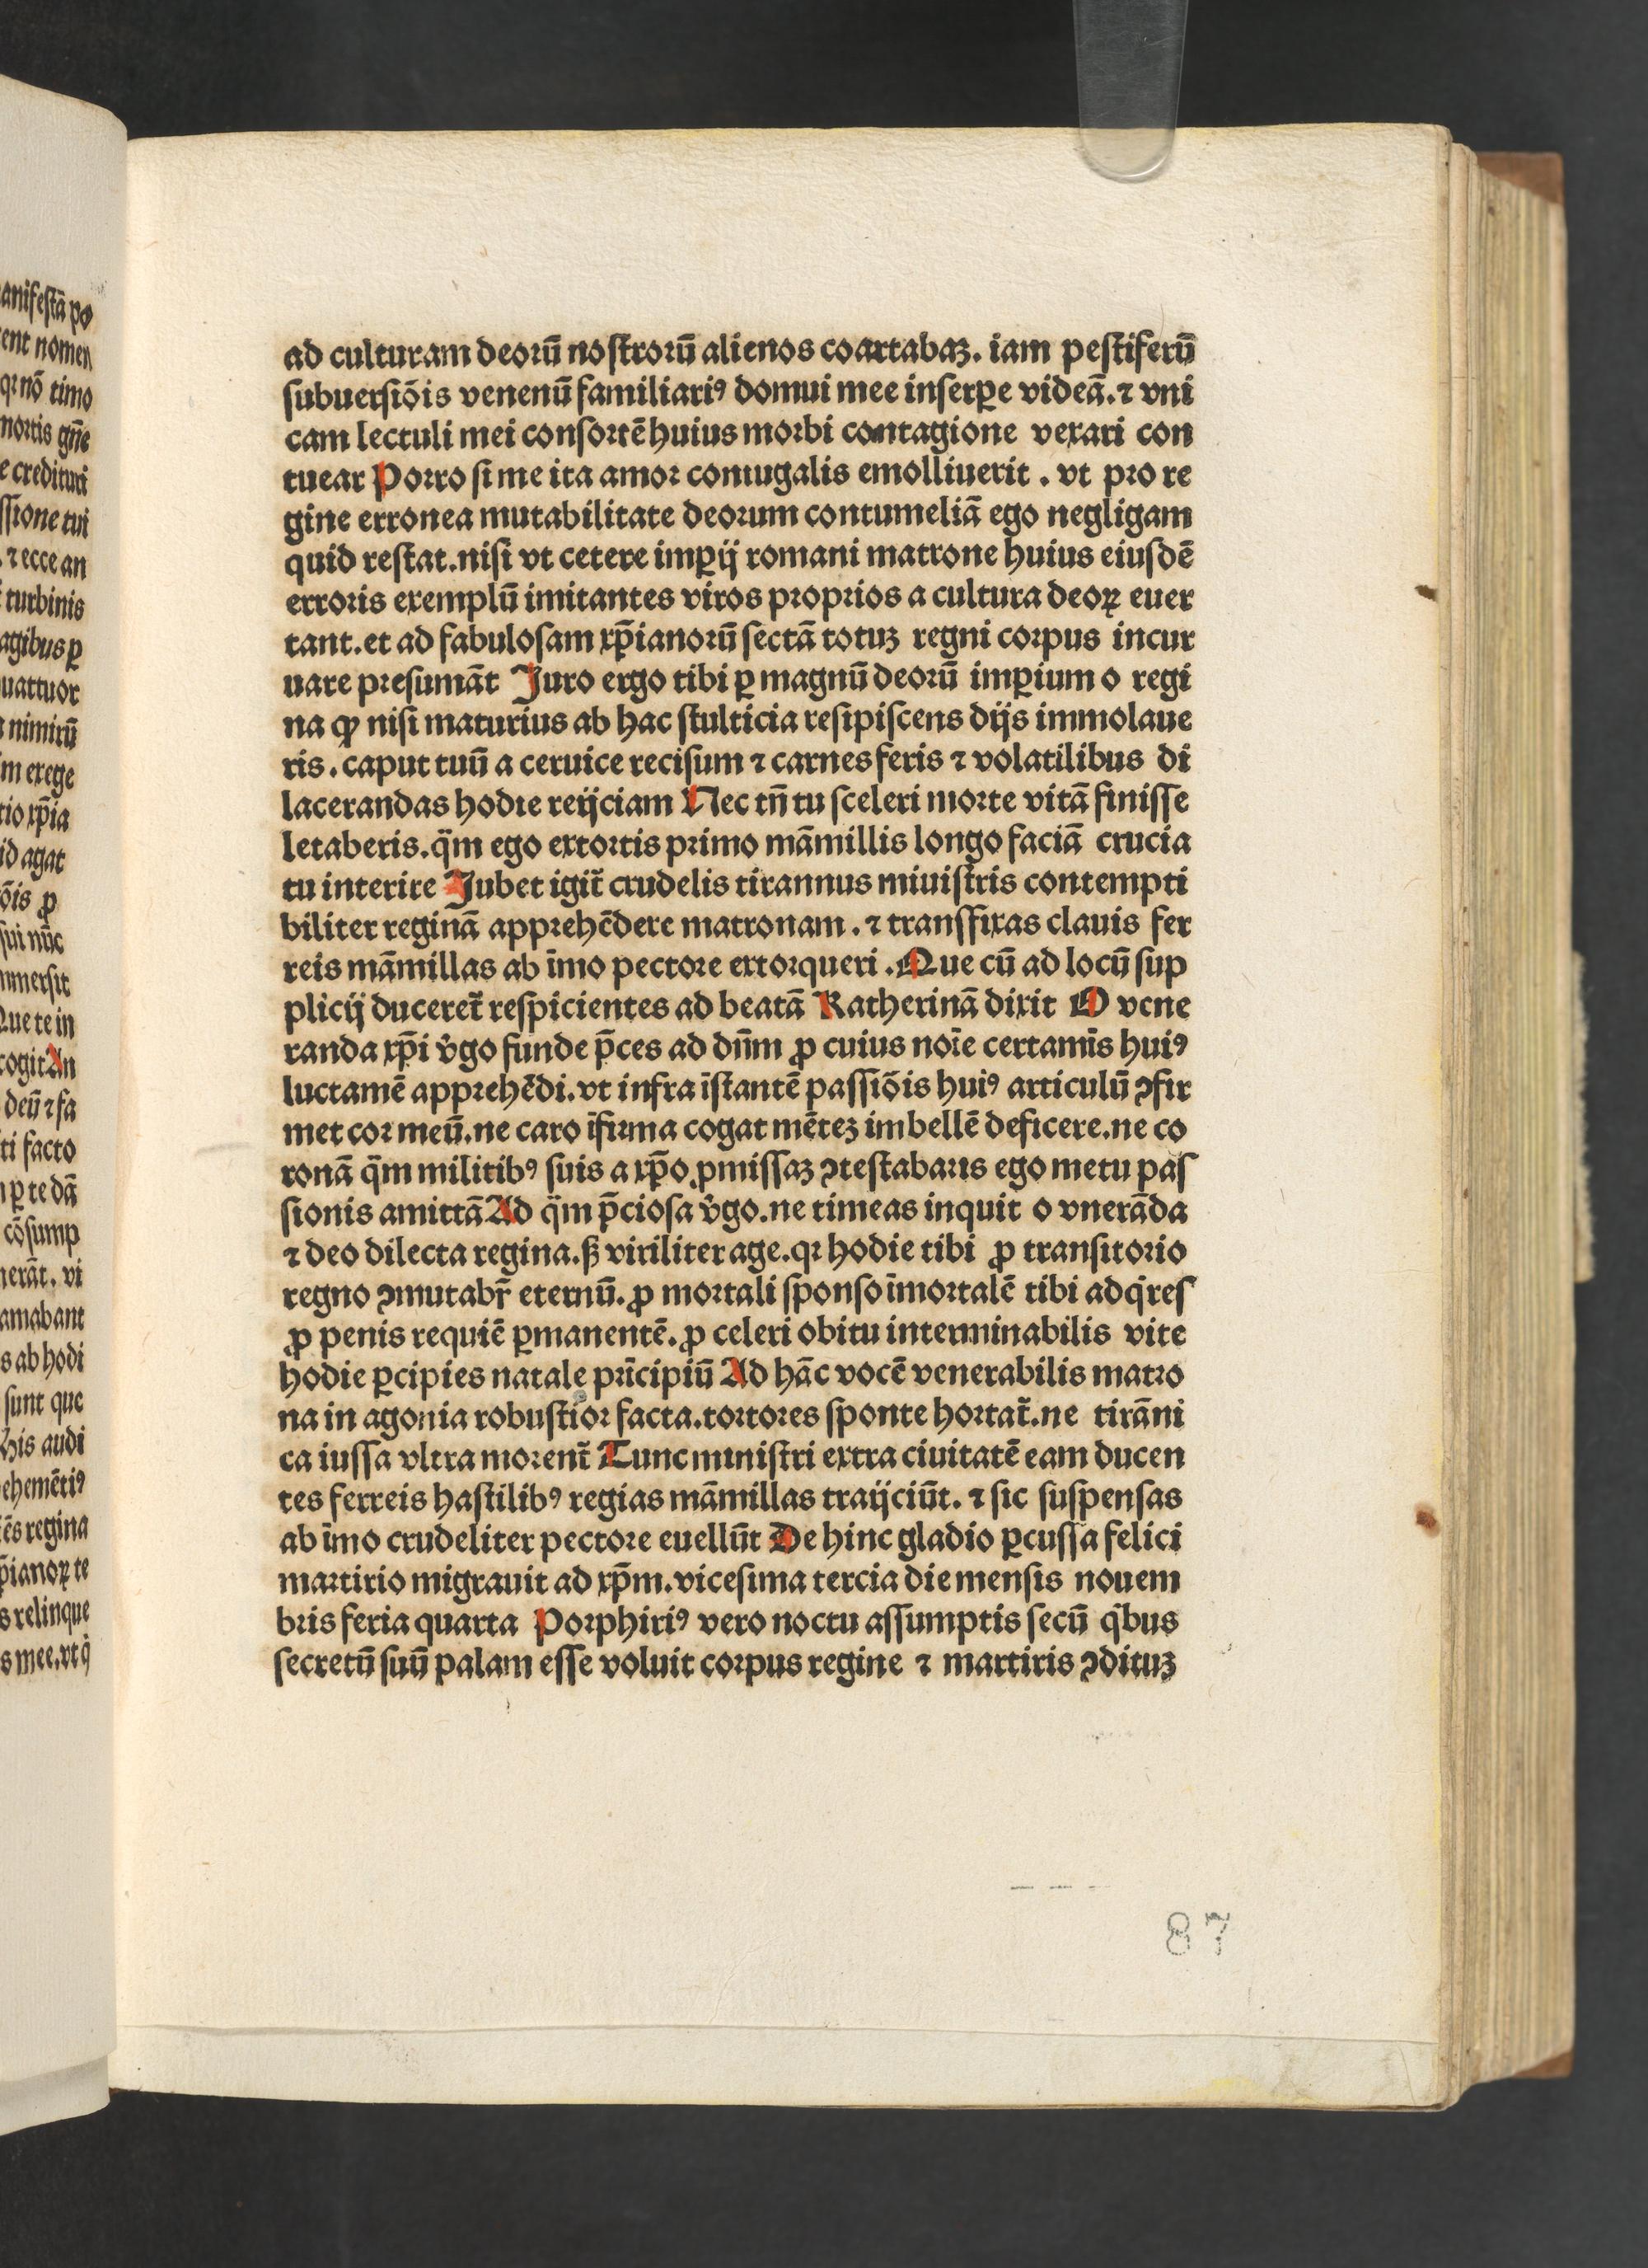 ad culturam deorū nostrorū alienos coartabaꝫ. iam pestiferū
subuersiōis venenū familiariꝰ domui mee inserꝑe videā. ⁊ vni
cam lectuli mei consortē huius morbi contagione vexari con
tuear Porro si me ita amor coniugalis emolliuerit. vt pro re
gine erronea mutabilitate deorum contumeliā ego negligam
quid restat. nisi vt cetere imꝑij romani matrone huius eiusdē
erroris exemplū imitantes viros proprios a cultura deoꝝ euer
tant. et ad fabulosam xp̄ianorū sectā totuꝫ regni corpus incur
uare presumāt Juro ergo tibi ꝑ magnū deorū imꝑium o regi
na ꝙ nisi maturius ab hac stulticia resipiscens dijs immolaue
ris. caput tuū a ceruice recisum ⁊ carnes feris ⁊ volatilibus di
lacerandas hodie reijciam Nec tn̄ tu sceleri morte vitā finisse
letaberis. q̄m ego extortis primo māmillis longo faciā crucia
tu interire Jubet igit̄ crudelis tirannus miuistris contempti
biliter reginā apprehēdere matronam. ⁊ transfixas clauis fer
reis māmillas ab īmo pectore extorqueri. Que cū ad locū sup
plicij duceret̄ respicientes ad beatā Katherinā dixit O vene
randa xp̄i v̄go funde p̄ces ad dn̄m ꝓ cuius noīe certamīs huiꝰ
luctamē apprehēdi. vt infra īstantē passiōis huiꝰ articulū ꝯfir
met cor meū. ne caro īfirma cogat mēteꝫ imbellē deficere. ne co
ronā q̄m militibꝰ suis a xp̄o ꝓmissaꝫ ꝯtestabaris ego metu pas
sionis amittā Ad q̄m p̄ciosa v̄go. ne timeas inquit o vnerāda
⁊ deo dilecta regina. ꝟ viriliter age. qꝛ hodie tibi ꝓ transitorio
regno ꝯmutabr̄ eternū. ꝓ mortali sponso īmortalē tibi adq̇res
ꝓ penis requiē ꝑmanentē. ꝓ celeri obitu interminabilis vite
hodie ꝑcipies natale prīcipiū Ad hāc vocē venerabilis matro
na in agonia robustior facta. tortores sponte hortat̄. ne tirāni
ca iussa vltra morent̄ Tunc ministri extra ciuitatē eam ducen
tes ferreis hastilibꝰ regias māmillas traijciūt. ⁊ sic suspensas
ab īmo crudeliter pectore euellūt De hinc gladio ꝑcussa felici
martirio migrauit ad xp̄m. vicesima tercia die mensis nouem
bris feria quarta Porphiriꝰ vero noctu assumptis secū q̇bus
secretū suū palam esse voluit corpus regine ⁊ martiris ꝯdituꝫ
87